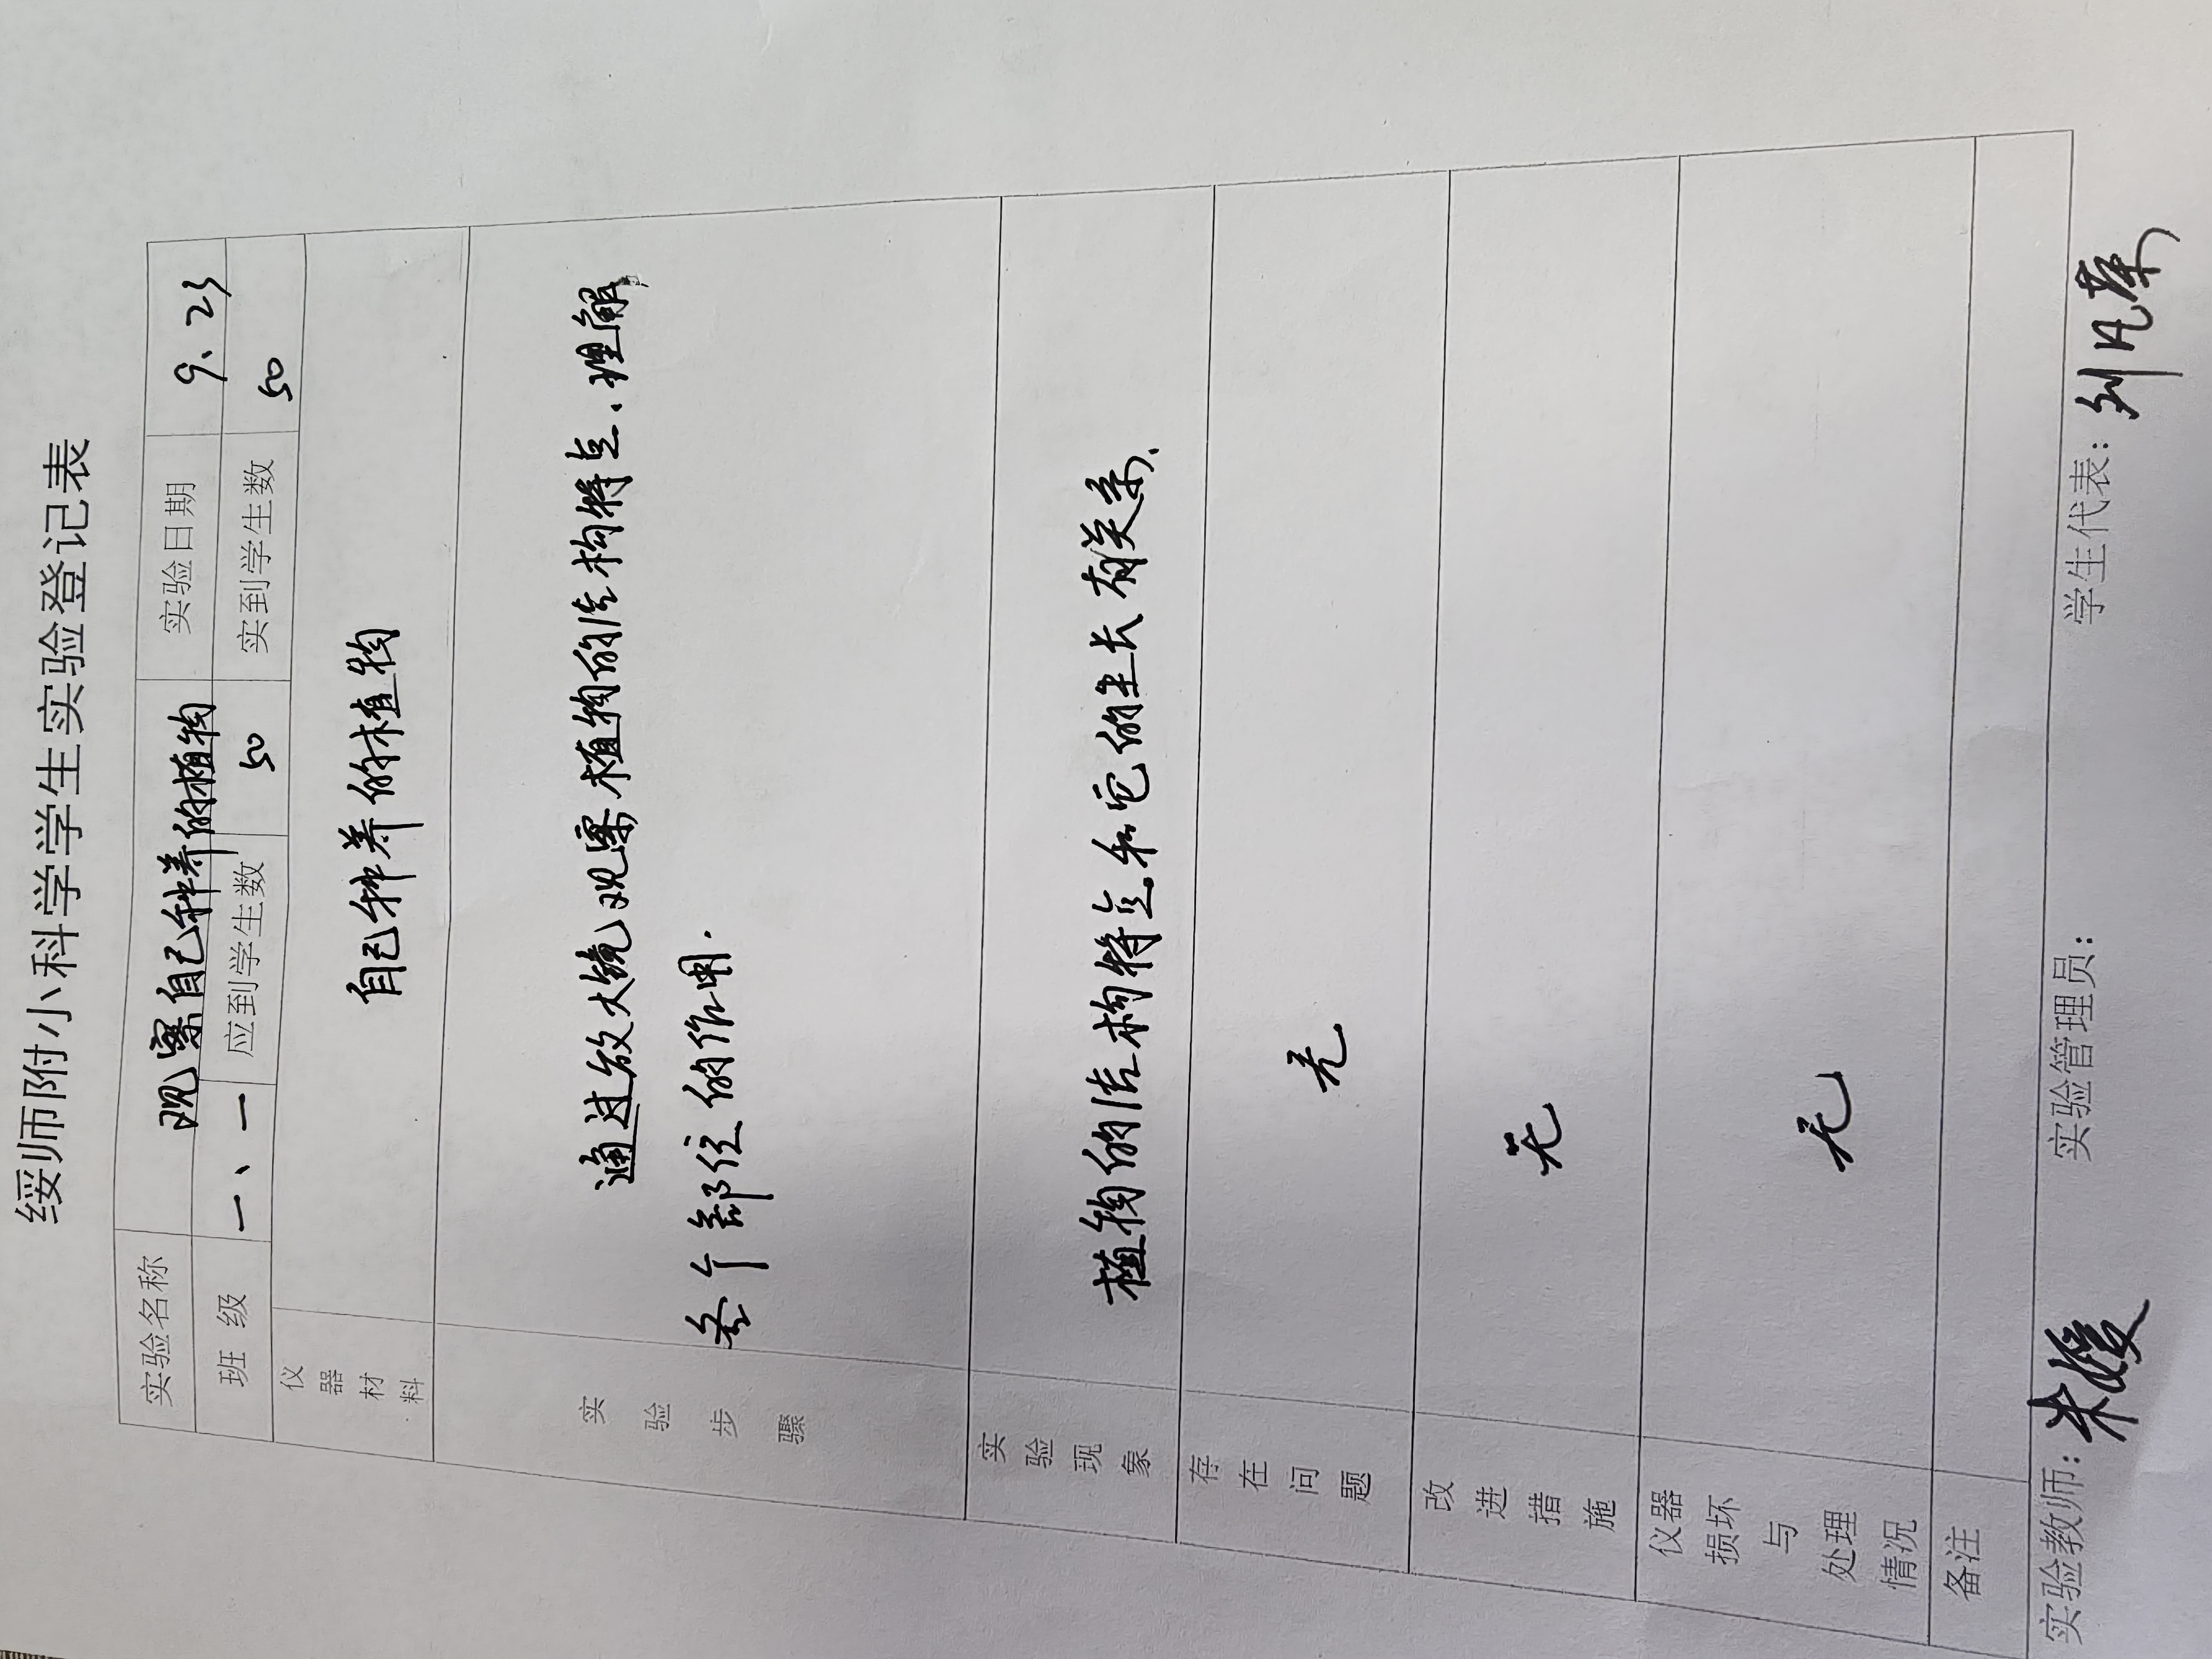 绥师附小科学学生实验登记表
实验名称 观察自己种养的植物 实验日期 9、23
班 级 一、一 应到学生数 50 实到学生数 50
仪器材料 自己种养的植物
实验步骤 通过放大镜观察植物的结构特点,理解
各个部位的作用.
实验现象 植物的结构特点和它的生长有关系、
存在问题 无
改进措施 无
仪器损坏与处理情况 无
备注
实验教师: 朱媛 实验管理员: 学生代表: 刘凡